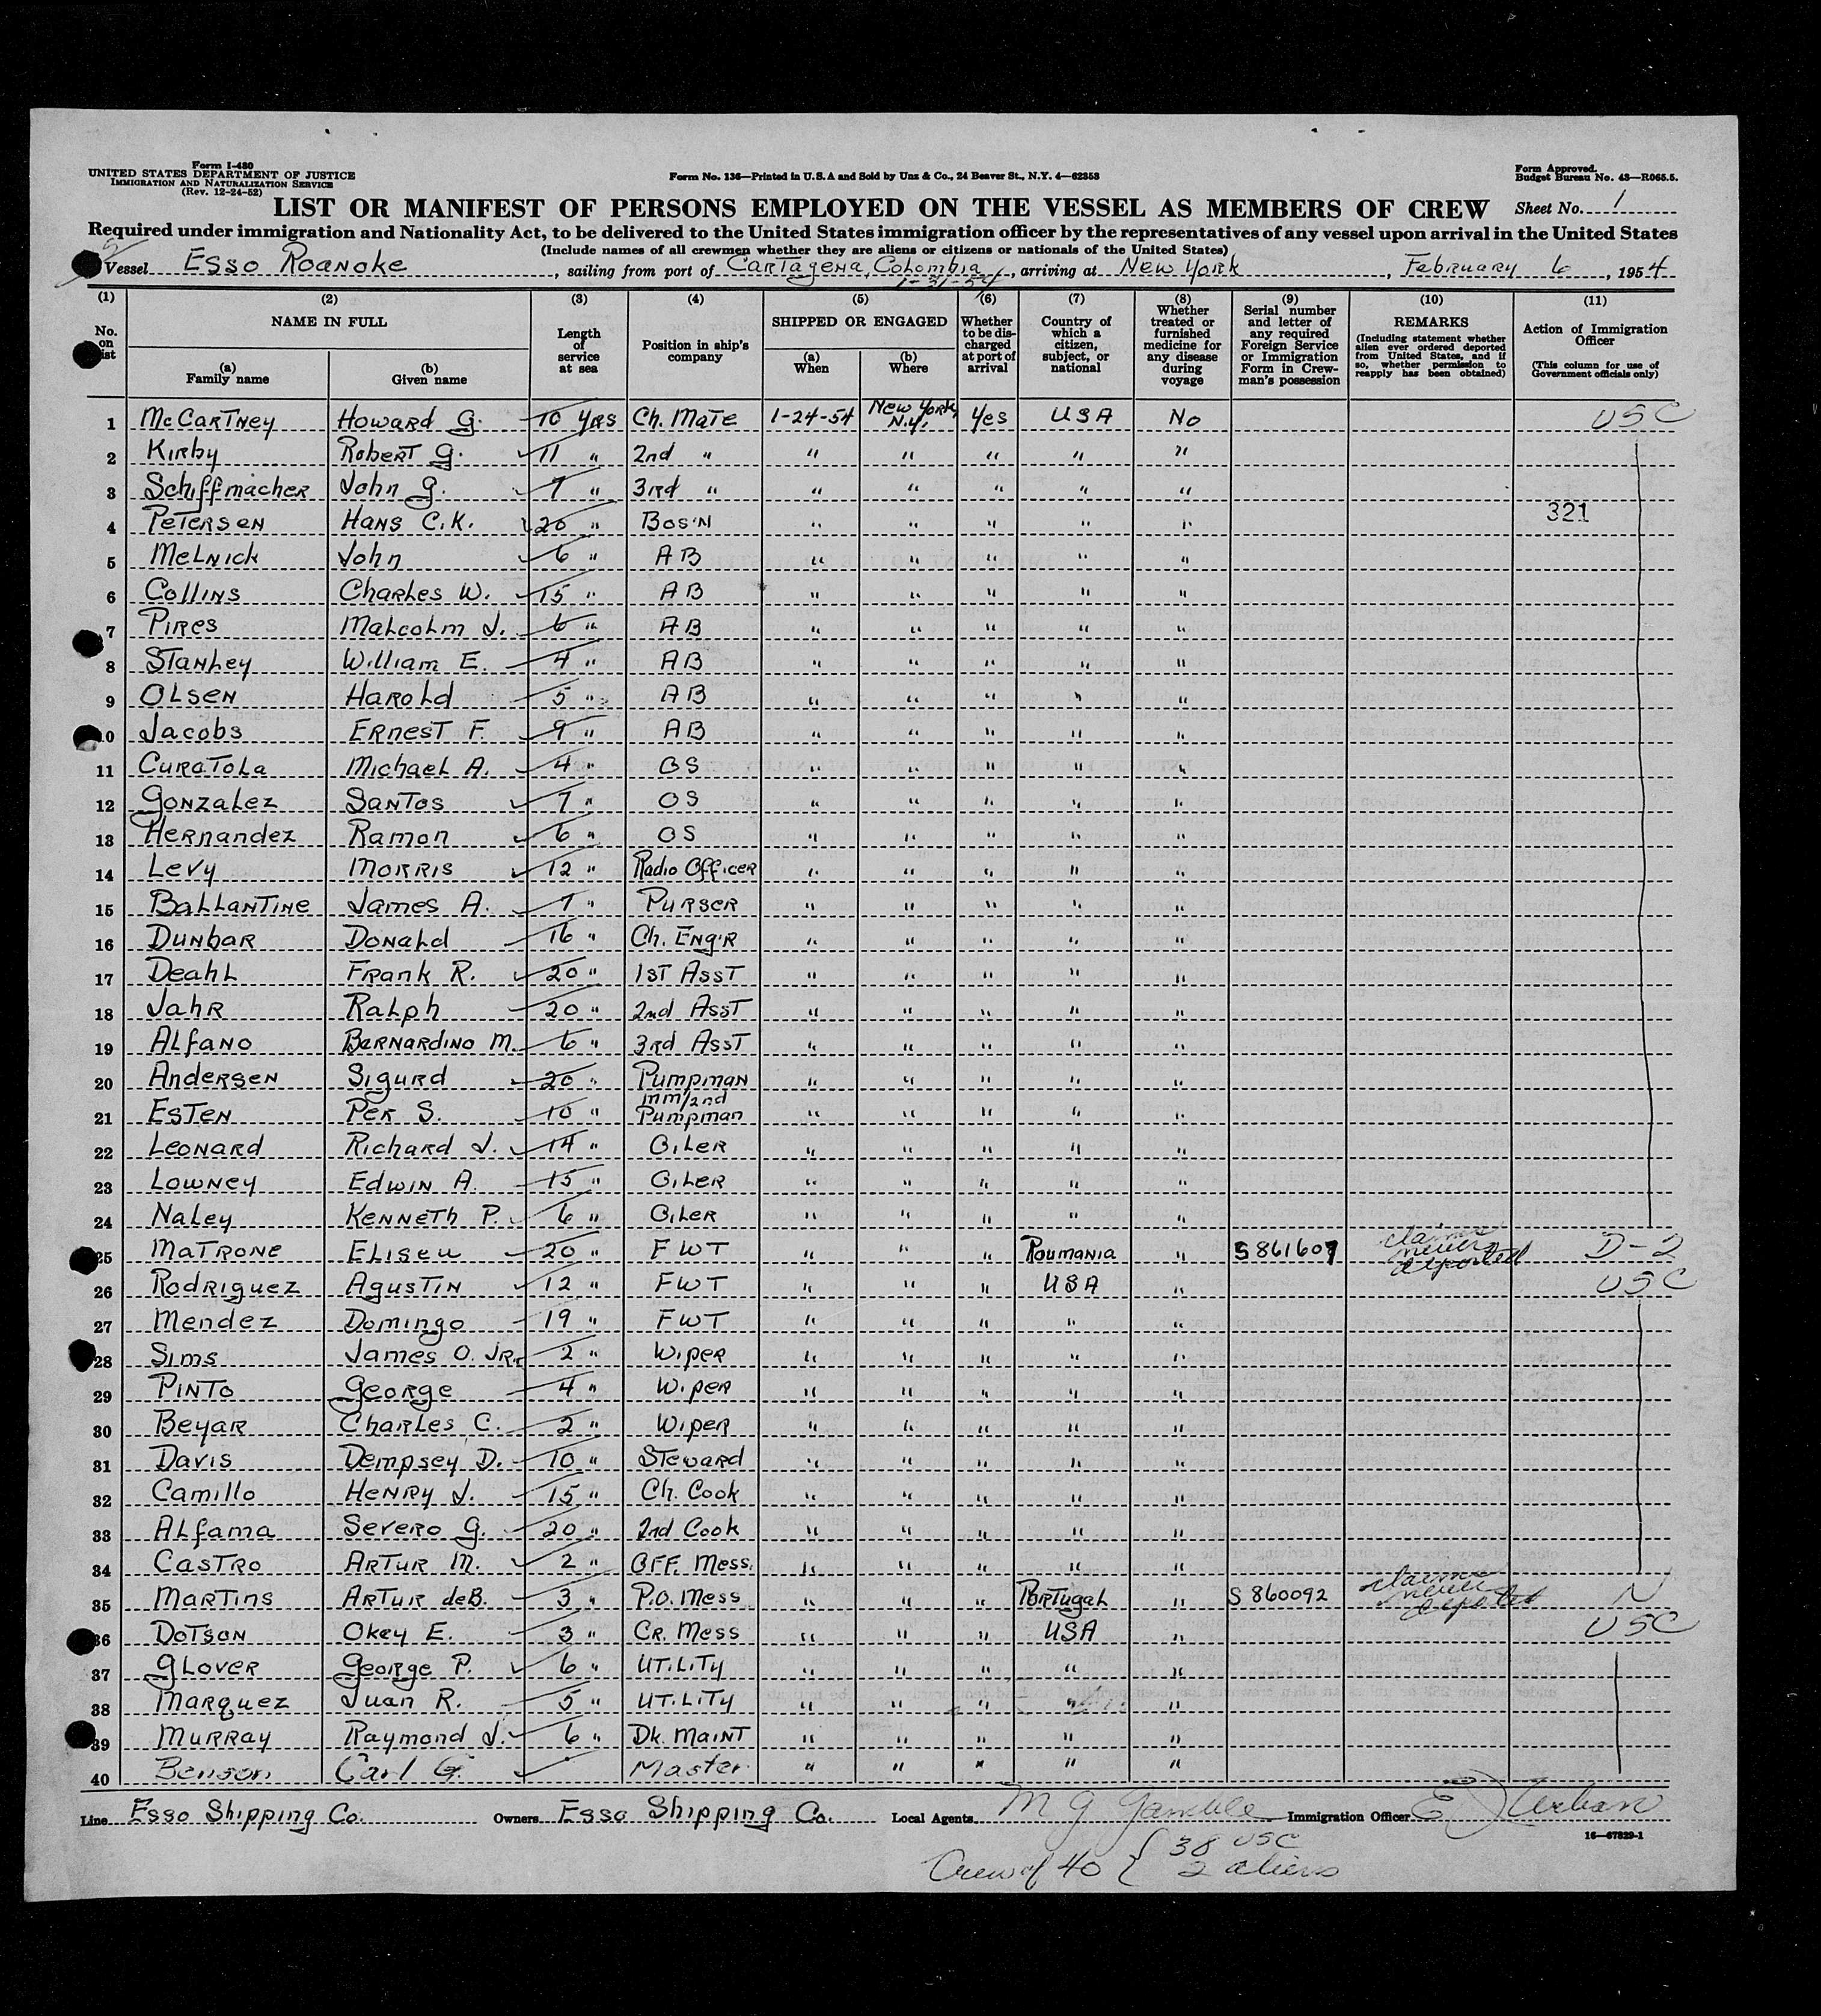 Form I-480
UNITED STATES DEPARTMENT OF JUSTICE
IMMIGRATION AND NATURALIZATION SERVICE
(Rev. 12-24-52)
Form No. 136—Printed in U.S.A and Sold by Unz & Co., 24 Beaver St., N.Y. 4—62353
Form Approved.
Budget Bureau No. 43—R065.5.
LIST OR MANIFEST OF PERSONS EMPLOYED ON THE VESSEL AS MEMBERS OF CREW Sheet No. 1
Required under immigration and Nationality Act, to be delivered to the United States immigration officer by the representatives of any vessel upon arrival in the United States
(Include names of all crewmen whether they are aliens or citizens or nationals of the United States)
Vessel Esso Roanoke, sailing from port of Cartagena, Colombia, arriving at New York, February 6, 1954
1-31-54
(1) (2) (3) (4) (5) (6) (7) (8) (9) (10) (11)
No. on list
NAME IN FULL
(a) Family name
(b) Given name
Length of service at sea
Position in ship's company
SHIPPED OR ENGAGED
(a) When
(b) Where
Whether to be discharged at port of arrival
Country of which a citizen, subject, or national
Whether treated or furnished medicine for any disease during voyage
Serial number and letter of any required Foreign Service or Immigration Form in Crewman's possession
REMARKS
(Including statement whether alien ever ordered deported from United States, and if so, whether permission to reapply has been obtained)
Action of Immigration Officer
(This column for use of Government officials only)
1 McCartney Howard G. 10 yrs Ch. Mate 1-24-54 New York, N.Y. Yes USA No USC
2 Kirby Robert G. 11 " 2nd " " " " " "
3 Schiffmacher John G. 7 " 3rd " " " " " "
4 Petersen Hans C.K. 20 " Bos'n " " " " " 321
5 Melnick John 6 " AB " " " " "
6 Collins Charles W. 15 " AB " " " " "
7 Pires Malcolm J. 6 " AB " " " " "
8 Stanley William E. 4 " AB " " " " "
9 Olsen Harold 5 " AB " " " " "
10 Jacobs Ernest F. 9 " AB " " " " "
11 Curatola Michael A. 4 " OS " " " " "
12 Gonzalez Santos 7 " OS " " " " "
13 Hernandez Ramon 6 " OS " " " " "
14 Levy Morris 12 " Radio Officer " " " " "
15 Ballantine James A. 7 " Purser " " " " "
16 Dunbar Donald 16 " Ch. Eng'r " " " " "
17 Deahl Frank R. 20 " 1st Asst " " " " "
18 Jahr Ralph 20 " 2nd Asst " " " " "
19 Alfano Bernardino M. 6 " 3rd Asst " " " " "
20 Andersen Sigurd 20 " Pumpman " " " " "
21 Esten Per S. 10 " MM/2nd Pumpman " " " " "
22 Leonard Richard J. 14 " Oiler " " " " "
23 Lowney Edwin A. 15 " Oiler " " " " "
24 Naley Kenneth P. 6 " Oiler " " " " "
25 Matrone Eliseu 20 " FWT " " " Roumania " S861607 claims never deported D-2
26 Rodriguez Agustin 12 " FWT " " " USA " USC
27 Mendez Domingo 19 " FWT " " " " "
28 Sims James O. Jr. 2 " Wiper " " " " "
29 Pinto George 4 " Wiper " " " " "
30 Beyar Charles C. 2 " Wiper " " " " "
31 Davis Dempsey D. 10 " Steward " " " " "
32 Camillo Henry J. 15 " Ch. Cook " " " " "
33 Alfama Severo G. 20 " 2nd Cook " " " " "
34 Castro Artur M. 2 " Off. Mess. " " " " "
35 Martins Artur deB. 3 " P.O. Mess " " " Portugal " S860092 claims never deported N
36 Dotson Okey E. 3 " Cr. Mess " " " USA " USC
37 Glover George P. 6 " Utility " " " " "
38 Marquez Juan R. 5 " Utility " " " " "
39 Murray Raymond J. 6 " Dk. Maint " " " " "
40 Benson Carl G. Master " " " " "
Line Esso Shipping Co. Owners Esso Shipping Co. Local Agents M G Gamble Immigration Officer E J Urban
16—67829-1
Crew of 40 { 38 USC
2 aliens